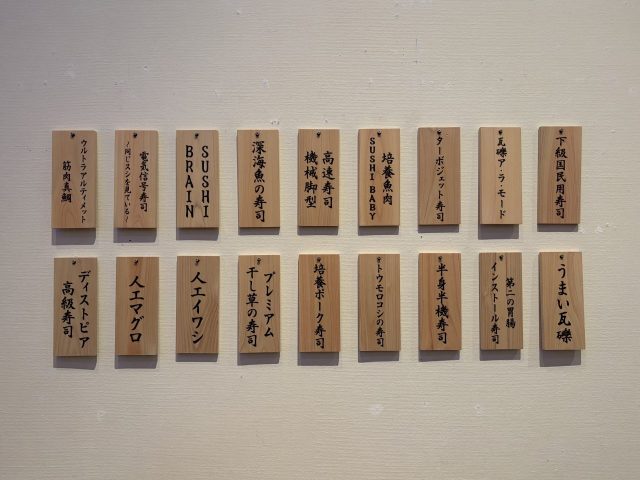 下級国民用寿司
瓦礫ア・ラ・モード
ターボジェット寿司
培養魚肉
SUSHI BABY
高速寿司
機械脚型
深海魚の寿司
SUSHI
BRAIN
電気信号寿司
〜同じスシを見ている〜
ウルトラアルティメット
筋肉真鯛
うまい瓦礫
第二の胃腸
インストール寿司
半身半機寿司
トウモロコシの寿司
培養ポーク寿司
プレミアム
干し草の寿司
人工イワシ
人工マグロ
ディストピア
高級寿司